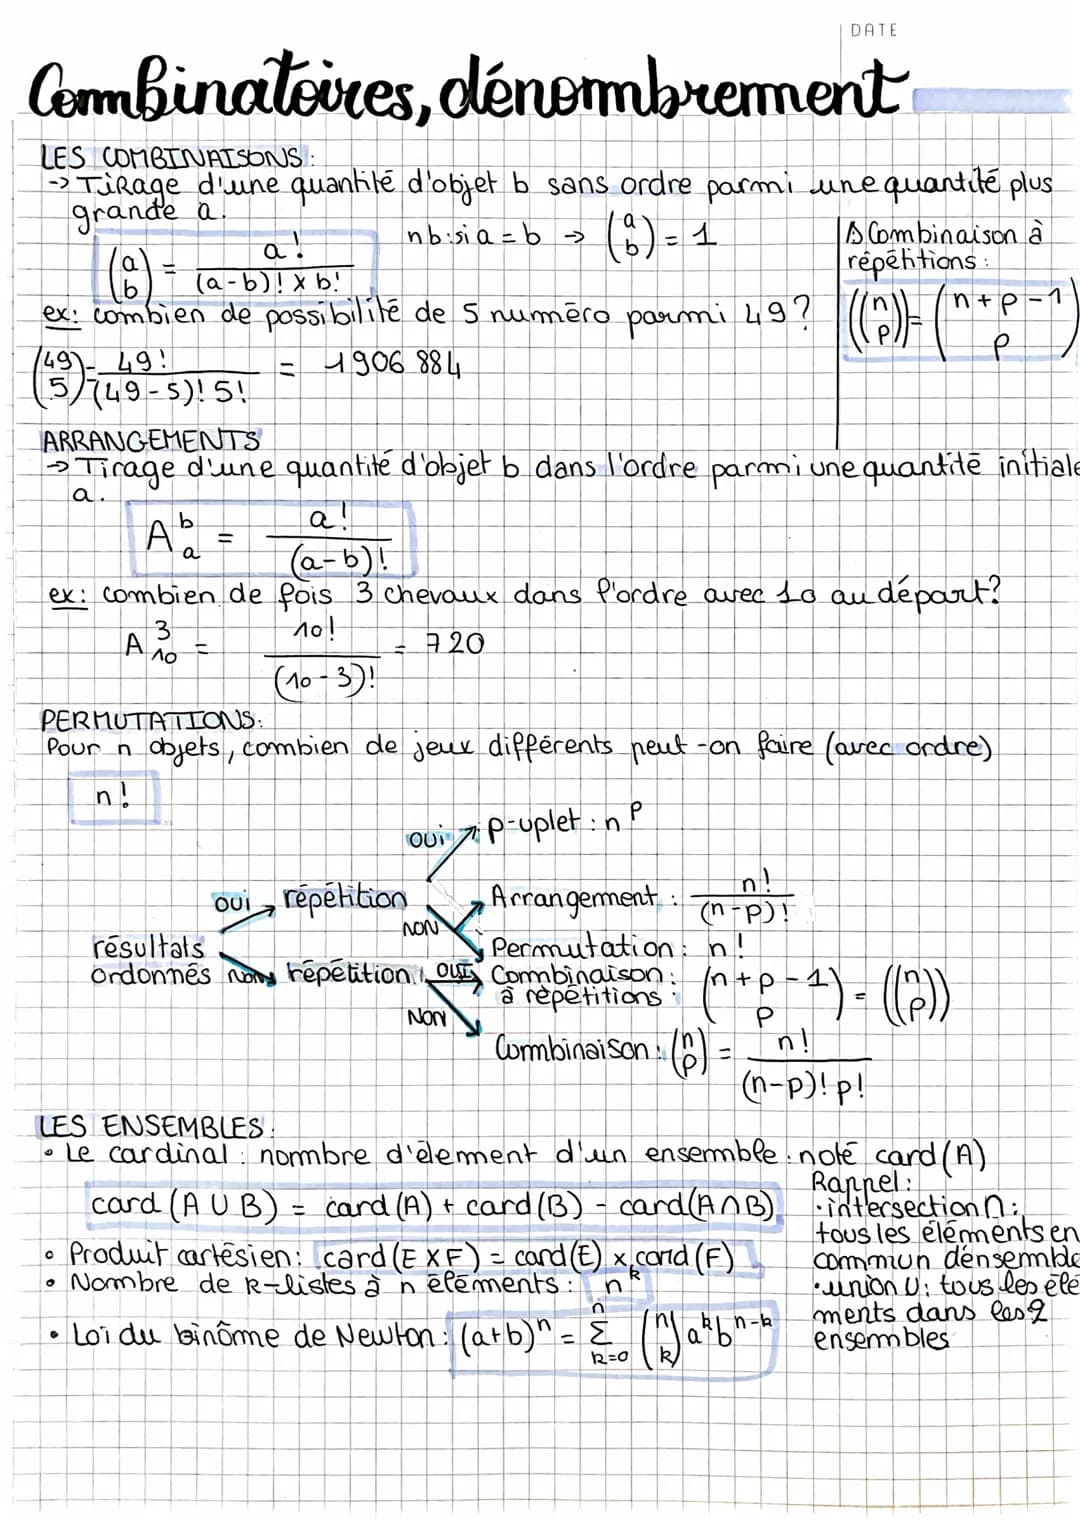 DATE
Combinatoires, dénombrement
LES COMBINAISONS:
-> Tirage d'une quantité d'objet b sans ordre parmi une quantité plus
grande a.
(a b) = a! / ((a-b)! x b!)
nb: si a = b → (a b) = 1
⚠ Combinaison à
répétitions :
((n p)) = (n+p-1 p)
ex: combien de possibilité de 5 numéro parmi 49?
(49 5) = 49! / ((49-5)! 5!) = 1906 884
ARRANGEMENTS
-> Tirage d'une quantité d'objet b dans l'ordre parmi une quantité initiale
a.
A b a = a! / (a-b)!
ex: combien de fois 3 chevaux dans l'ordre avec 10 au départ?
A 3 10 = 10! / (10-3)! = 720
PERMUTATIONS:
Pour n objets, combien de jeux différents peut-on faire (avec ordre)
n!
oui p-uplet : n^p
oui répétition
Arrangement : n! / (n-p)!
NON
résultats
Permutation : n!
ordonnés non répétition OUI Combinaison :
à répétitions : (n+p-1 p) = ((n p))
NON
Combinaison : (n p) = n! / ((n-p)! p!)
LES ENSEMBLES:
• Le cardinal : nombre d'élement d'un ensemble : noté card(A)
card (A U B) = card (A) + card (B) - card(A∩B)
• Produit cartésien: card (E X F) = card (E) x card (F)
• Nombre de k-listes à n éléments : n^k
• Loi du binôme de Newton : (a+b)^n = n Σ k=0 (n k) a^k b^n-k
Rappel:
• intersection ∩ :
tous les éléments en
commun d'ensemble
• union U : tous les élé
ments dans les 2
ensembles